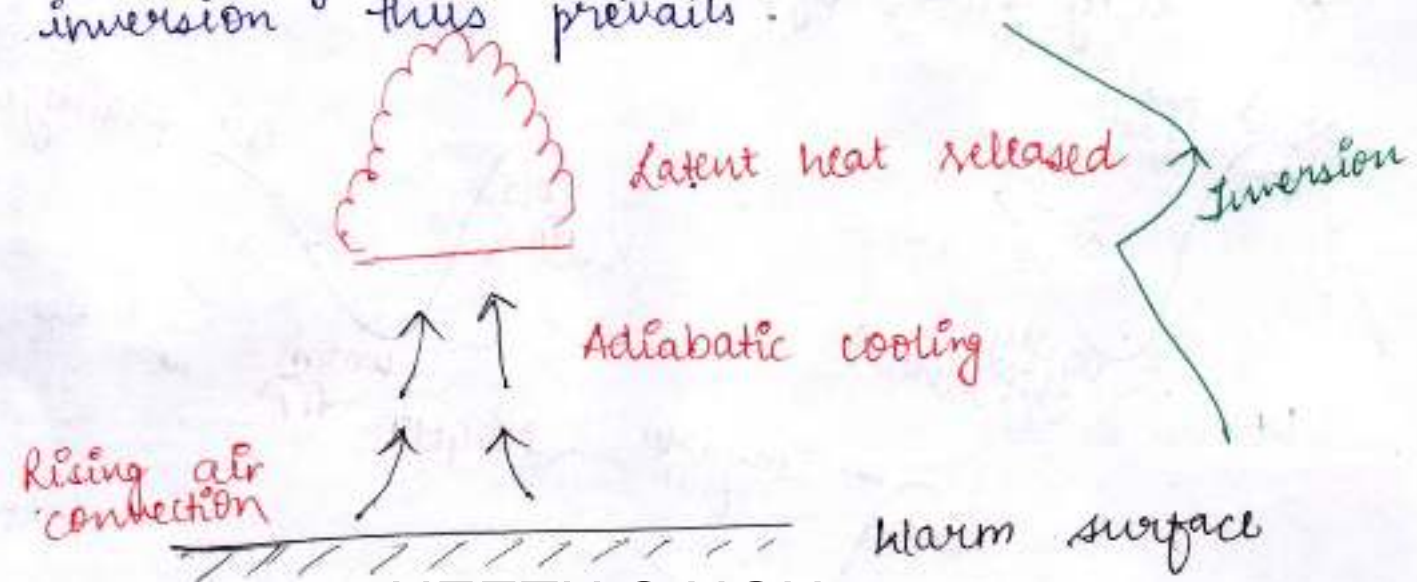 inversion thus prevails.
Latent heat released
Inversion
Adiabatic cooling
Rising air
convection
Warm surface